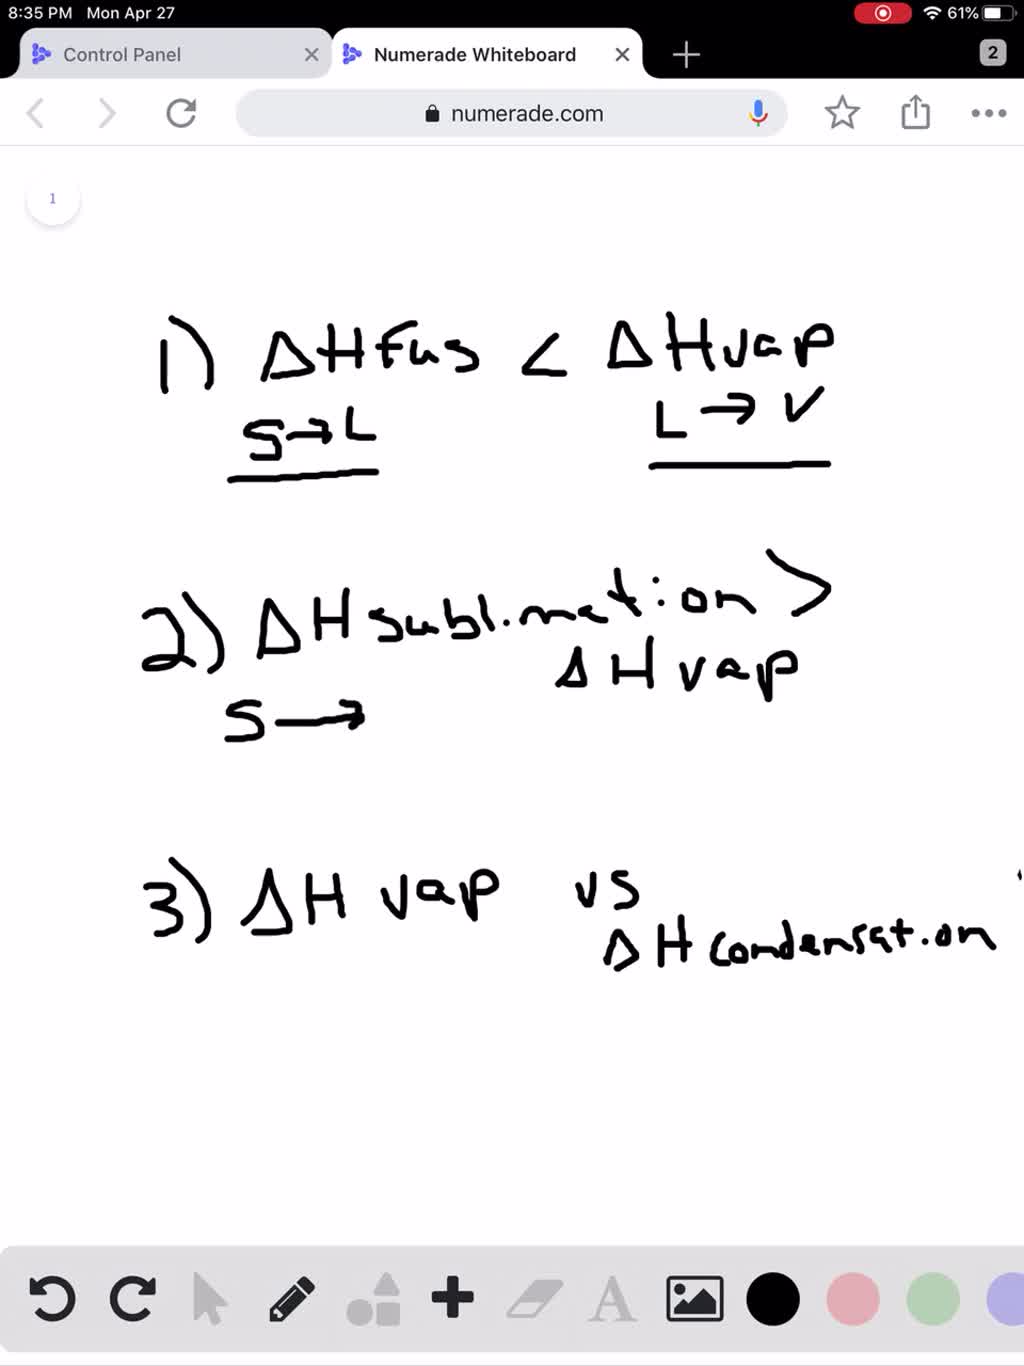 8:35 PM Mon Apr 27 61%
Control Panel Numerade Whiteboard 2
numerade.com
1
1) ΔHfus < ΔHvap
S→L L→V
2) ΔHsublimation >
ΔHvap
S→
3) ΔHvap vs
ΔHcondensation
A